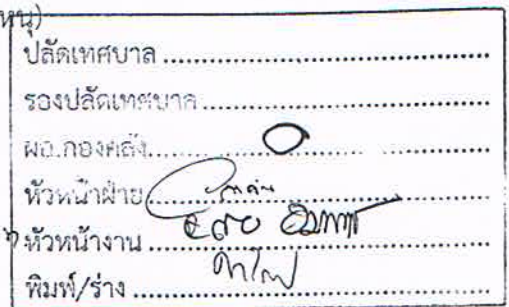 หนุ)
ปลัดเทศบาล
รองปลัดเทศบาล
ผอ.กองคลัง
หัวหน้าฝ่าย
หัวหน้างาน
พิมพ์/ร่าง